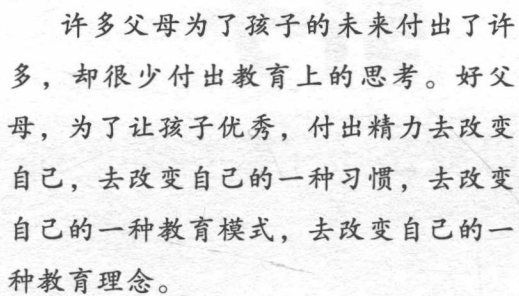 许多父母为了孩子的未来付出了许
多，却很少付出教育上的思考。好父
母，为了让孩子优秀，付出精力去改变
自己，去改变自己的一种习惯，去改变
自己的一种教育模式，去改变自己的一
种教育理念。